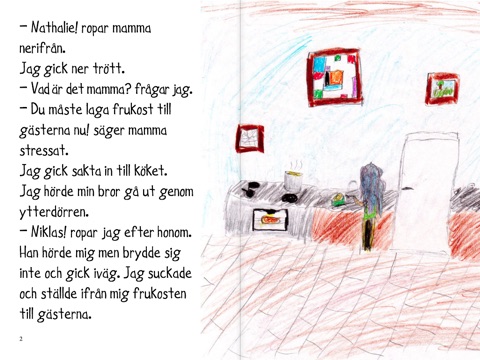 – Nathalie! ropar mamma
nerifrån.
Jag gick ner trött.
– Vad är det mamma? frågar jag.
– Du måste laga frukost till
gästerna nu! säger mamma
stressat.
Jag gick sakta in till köket.
Jag hörde min bror gå ut genom
ytterdörren.
– Niklas! ropar jag efter honom.
Han hörde mig men brydde sig
inte och gick iväg. Jag suckade
och ställde ifrån mig frukosten
till gästerna.
2